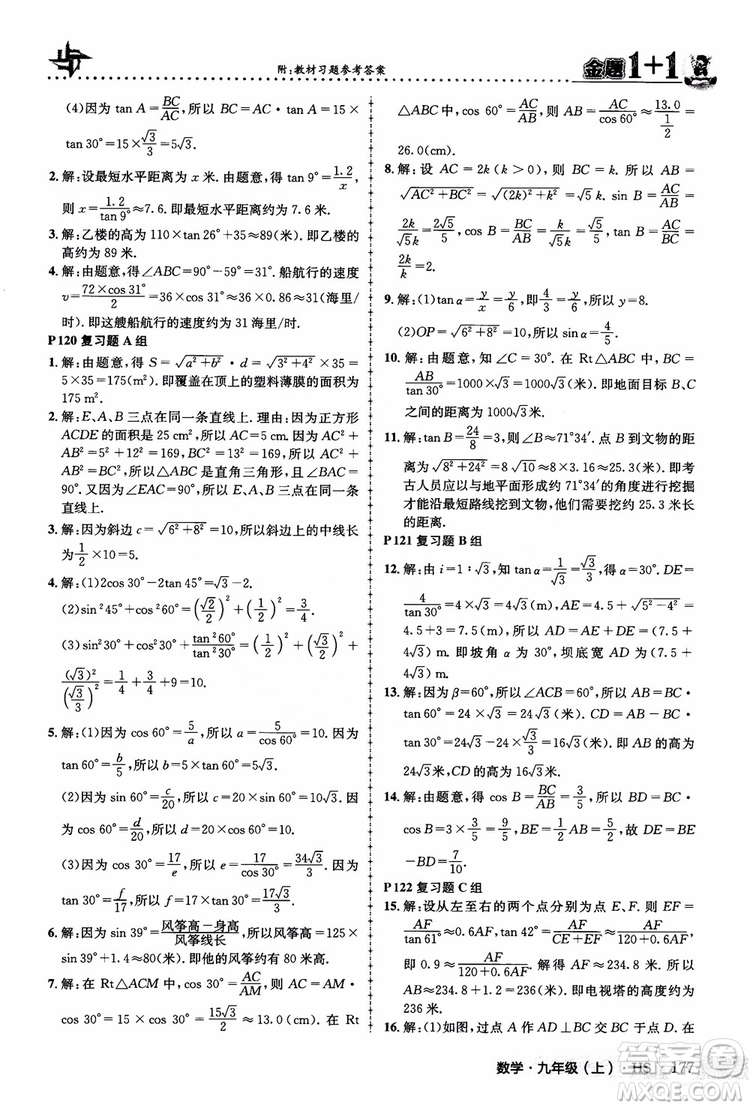 附:教材习题参考答案
金题1+1
(4)因为 tan A=BC/AC,所以 BC=AC×
tan30°=15×√3/3=5√3.
2.解:设最短水平距离为 x 米.由题意,得 tan 9°=1.2/x,
则 x=1.2/tan 9°≈7.6.即最短水平距离为 7.6 米.
3.解:乙楼的高为 110×tan 26°+35≈89.即乙楼的高约为 89 米.
4.解:由题意,得∠ABC=90°-59°=31°.船航行的速度
v=72×cos 31°/2=36×cos 31°≈36×0.86≈31(海里/
时).即这艘船航行的速度约为 31 海里/时.
P120 复习题 A 组
1.解:由题意,得 S=√(a²+b²)·d=√(3²+4²)×
35=5×35=175(m²).即覆盖在顶上的塑料薄膜的面积为
175 m².
2.解:E、A、B 三点在同一条直线上.理由:因为正方形
ACDE 的面积是 25 cm²,所以 AC²=25.因为 AC²+
AB²=5²+12²=169,BC²=13²=169,所以 AC²+
AB²=BC²,所以△ABC 是直角三角形,即∠BAC=
90°,又∠EAC=90°,所以 E、A、B 三点在同一条
直线上.
3.解:因为斜边 c=√(6²+8²)=10,所以斜边上的中线长
为 1/2×10=5.
4.解:(1)2cos 30°-2tan 45°=2×√3/2-2×1=√3-2.
(2)sin²45°+cos²60°=(√2/2)²+(1/2)²=1/2+1/4=3/4.
(3)sin²30°+cos²30°+tan²60°/tan²30°=(1/2)²+(√3/2)²+
(√3)²/(√3/3)²=1/4+3/4+9=10.
5.解:(1)因为 cos 60°=5/a,所以 a=5/cos 60°=10.因为
tan60°=b/5,所以 b=5×tan 60°=5√3.
(2)因为 sin 60°=d/20,所以 d=20×sin 60°=10√3.因
为 cos 60°=c/20,所以 c=20×cos 60°=10.
(3)因为 cos 30°=17/e,所以 e=17/cos 30°=34√3/3.因为
tan 30°=f/17,所以 f=17×tan 30°=17√3/3.
6.解:因为 sin 39°=风筝高-身高/风筝线长,所以风筝高=125×
sin 39°+1.4≈80(米).即他的风筝约有 80 米高.
7.解:在 Rt△ACM 中,因为 cos 30°=AC/AM,所以 AC=
cos 30°×AM=√3/2×15=15√3/2≈13.0(cm).在 Rt
△ABC 中,cos 60°=AC/AB,所以 AB=AC/cos60°≈13.0/(1/2)=
26.0(cm).
8.解:设 AC=2k(k>0),则 BC=k.所以 AB=
√(AC²+BC²)=√((2k)²+k²)=√5 k. sin B=AC/AB=
2k/√5k=2√5/5,cos B=BC/AB=k/√5k=√5/5,tan B=AC/BC=
2k/k=2.
9.解:(1)tan α=y/x=y/6,即 4/3=y/6,所以 y=8.
(2)OP=√(6²+8²)=10,所以 sin α=8/10=4/5.
10.解:由题意,得∠C=30°.在 Rt△ABC 中,BC=
AB/tan 30°=1000×√3=1000√3(米).即地面目标 B、C
之间的距离为 1000√3 米.
11.解:tan B=24/8=3,所以∠B≈71°34′.点 B 到文物的距离为
√(8²+24²)=8√10≈25.3(米).即考
古人员应以与地平面形成约 71°34′的角度进行挖掘
才能沿最短路线挖到文物,他们需要挖约 25.3 米长
的距离.
P121 复习题 B 组
12.解:由 i=1∶√3,知 tan α=1/√3=√3/3,得 α=30°.DE=
4/tan30°=4√3(m),所以 AD=AE+DE=4.5+√(5²-4²)=
4.5+√3)m.即坡角 α=30°,坝底宽 AD 为(7.5+4
√3) m.
13.解:因为 β=60°,所以∠ACB=60°,所以 AB=BC×
tan 60°=24×√3=24√3(米).所以 CD=AB-BC×
tan30°=24√3-24×√3/3=16√3(米).即 AB 的高度为
24√3米,CD 的高度为 16√3米.
14.解:由题意,得 cos B=BC/AB=3/5,所以 BD=BC·
cos B=3×3/5=9/5,所以 DE=BE-BD=1/2AB
-BD=7/10.
P122 复习题 C 组
15.解:设从左至右的两个点分别为点 C、D.则 EF=
AF/tan 61°,CF=AF/tan 42°,
即 0.9≈AF/,所以 AF≈233.2(米),所以
AB≈234.8≈236(米).即电视塔的大约高度为
236 米.
16.解:(1)如图,过点 A 作 AD⊥BC 交 BC 于点 D.在
数学·九年级(上)·HS 177
答案圈